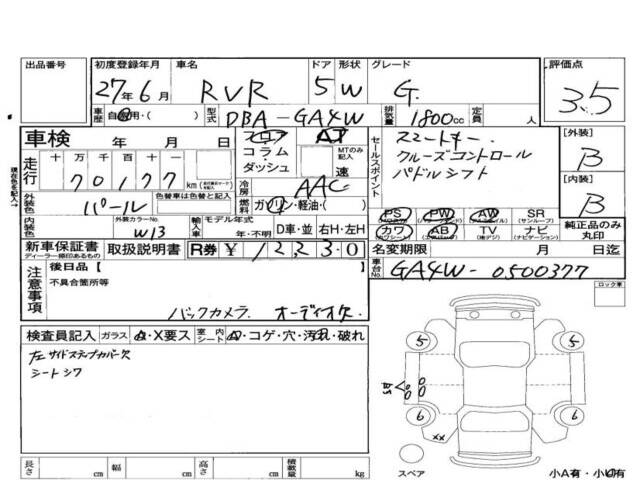 出品番号
初度登録年月 車名 ドア 形状 グレード 評価点
27年6月 RVR 5 W G. 3.5
車歴 自家用・( ) 型式 DBA-GA4W 排気量 1800cc 定員 人
車検 年 月 日
フロア
コラム
ダッシュ
AT
MTのみ記入
速
セールスポイント
スマートキー.
クルーズコントロール
パドルシフト
[外装]
B
[内装]
B
現在のを記入→
走行 十万千百十一
70177 km
冷房 AAC
外装色 パール 色替車は色替と記入
燃料 ガソリン・軽油・( )
PS PW AW SR (サンルーフ)
カワ AB TV ナビ (ナビゲーション)
純正品のみ丸印
内装色 外装カラーNo. W13
輸入車 モデル年式 年・不明 D車・並 右H・左H
新車保証書 ディーラー捺印あるもの 取扱説明書 R券 ¥ 12230
名変期限 月 日迄
車台No. GA4W-0500377
注意事項
後日品[ ]
不具合箇所等
バックカメラ. オーディオ欠.
ロック車
検査員記入 ガラス A・X要ス 室内シート コゲ・穴・汚れ・破れ
左サイドステップカバー欠
シートシワ
5 5
6 6
XX
長さ cm 幅 cm 高さ cm 積載量 kg
スペア
小A有・小U有